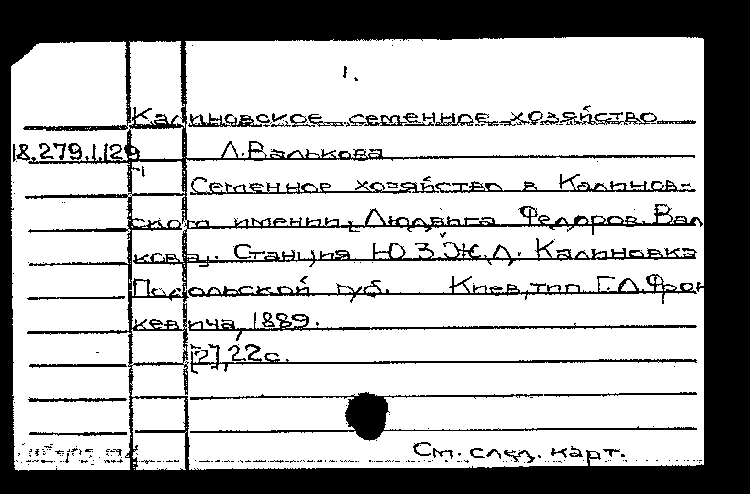 1.
Калиновское семенное хозяйство
18.279.1.129
Л. Валькова
Семенное хозяйство в Калинов-
ском имении, Людвига Федоров. Вал
кова,. Станция Ю.З.Ж.Д. Калиновка
Подольской губ. Киев, тип. Г.Л.Фрон
кевича, 1889.
[2], 22 с.
См. след. карт.